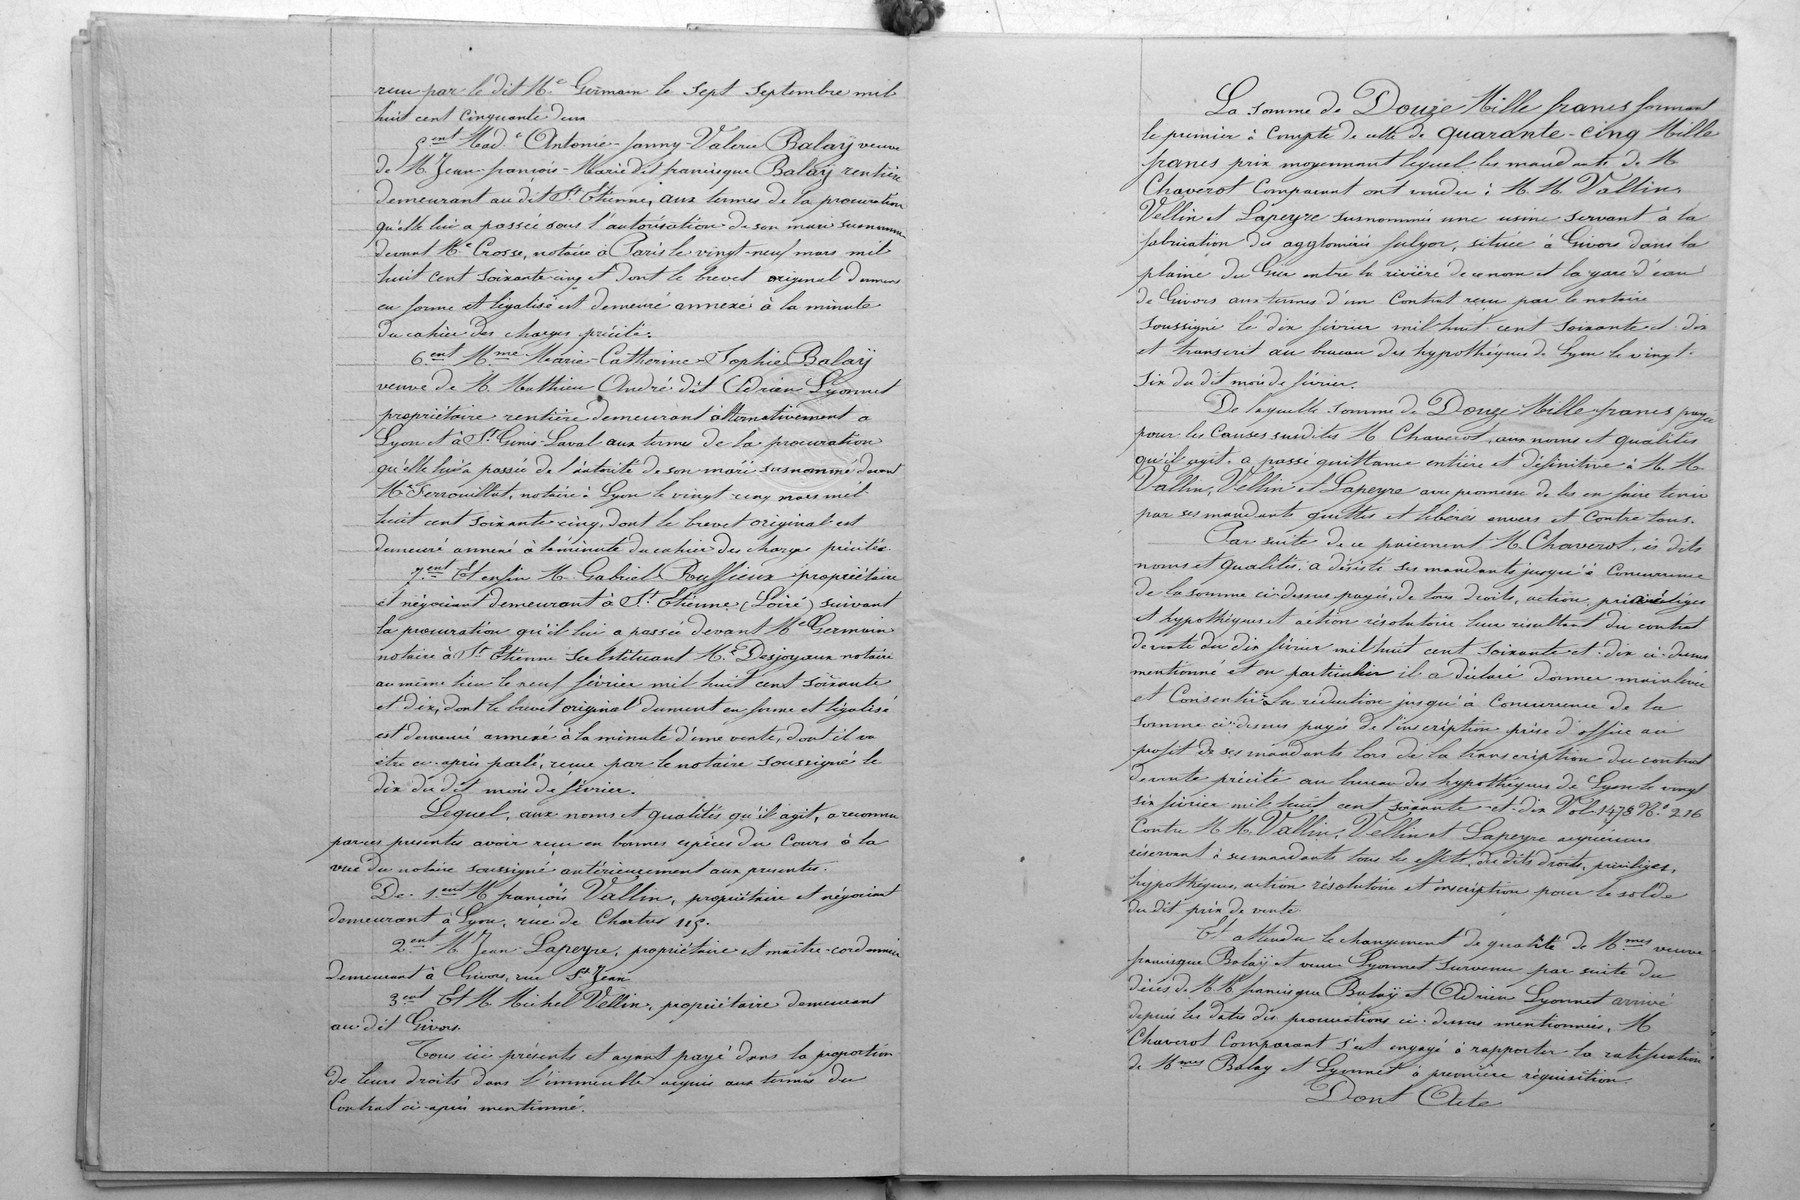 reçu par le dit Me Germain le sept septembre mil
huit cent cinquante deux
5ent Made Antonie-fanny-Valerie Balaÿ veuve
de M Jean-françois-Marie dit francisque Balaÿ rentière
demeurant au dit St Etienne, aux termes de la procuration
qu'elle lui a passée sous l'autorisation de son mari susnommé
devant Me Crosse, notaire à Paris le vingt-neuf mars mil
huit cent soixante cinq et dont le brevet original dument
en forme et légalisé est demeuré annexé à la minute
du cahier des charges précité.
6ent Mme Marie-Catherine-Sophie Balaÿ
veuve de M. Mathieu André dit Adrien Lyonnet
propriétaire rentière demeurant alternativement a
Lyon et à St Genis-Laval aux termes de la procuration
qu'elle lui a passée de l'autorité de son mari susnommé devant
Me Ferrouillat, notaire à Lyon le vingt cinq mars mil
huit cent soixante cinq, dont le brevet original est
demeuré annexé à la minute du cahier des charges précité
7ent Et enfin M. Gabriel Rouffieux propriétaire
et négociant demeurant à St Etienne (Loire) suivant
la procuration qu'il lui a passée devant Me Germain
notaire à St Etienne substituant Me Desjoyaux notaire
au même lieu le neuf février mil huit cent soixante
et dix, dont le brevet original dument en forme et légalisé
est demeuré annexé à la minute d'une vente, dont il va
être ci-après parlé, reçue par le notaire soussigné le
dix du dit mois de février.
Lequel, aux noms et qualités qu'il agit, a reconnu
par ces presentes avoir reçu en bonnes espèces du Cours à la
vue du notaire soussigné antérieurement aux presentes.
De 1ent M françois Vallin, propriétaire et négociant
demeurant à Lyon, rue de Chartres 115.
2ent M Jean Lapeyre, propriétaire et maître-cordonnier
demeurant à Givors, rue St Jean
3ent Et M Michel Vellin, propriétaire demeurant
au dit Givors.
Tous ici présents et ayant payé dans la proportion
de leurs droits dans l'immeuble acquis aux termes du
Contrat ci-après mentionné.
La somme de Douze Mille francs formant
le premier à Compte de celle de quarante-cinq Mille
francs prix moyennant lequel les mandants de M
Chaverot Comparant ont vendu à M.M. Vallin,
Vellin et Lapeyre susnommés une usine servant à la
fabrication des agglomérés fulgor, située à Givors dans la
plaine du Gier entre la rivière de ce nom et la gare d'eau
de Givors aux termes d'un Contrat reçu par le notaire
soussigné le dix février mil huit cent soixante et dix
et transcrit au bureau des hypothèques de Lyon le vingt-
six du dit mois de février.
De laquelle somme de Douze Mille francs payée
pour les Causes susdites M Chaverot, aux noms et qualités
qu'il agit, a passé quittance entière et définitive à M.M.
Vallin, Vellin et Lapeyre avec promesse de les en faire tenir
par ses mandants quittes et libérés envers et Contre tous.
Par suite de ce paiement M. Chaverot, ès dits
noms et qualités, a désisté ses mandants jusqu'à Concurrence
de la somme ci-dessus payée, de tous droits, action, privilèges
et hypothèques et action résolutoire leur résultant du contrat
de vente du dix février mil huit cent soixante et dix ci-dessus
mentionné et en particulier il a déclaré donner mainlevée
et Consentir la réduction jusqu'à Concurrence de la
somme ci-dessus payée de l'inscription prise d'office au
profit de ses mandants lors de la transcription du contrat
de vente précité au bureau des hypothèques de Lyon le vingt
six février mil huit cent soixante et dix Vol. 1478 No 216
Contre M.M. Vallin, Vellin et Lapeyre acquéreurs
réservant à ses mandants tous les effets, des dits droits, privilèges,
hypothèques, action résolutoire et inscription pour le solde
du dit prix de vente
Et attendu le changement de qualité de Mmes veuve
francisque Balaÿ et veuve Lyonnet survenu par suite du
décès de M.M. francisque Balaÿ et Adrien Lyonnet arrivé
depuis les dates des procurations ci-dessus mentionnées, M
Chaverot Comparant s'est engagé à rapporter la ratification
de Mmes Balay et Lyonnet à première réquisition.
Dont Acte